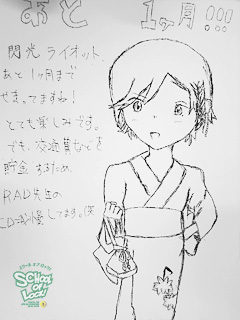 あと 1ヶ月!!!
閃光ライオット、
あと1ヶ月まで
せまってますね!
とても楽しみです。
でも、交通費などを
貯金するため、
RAD先生の
CD我慢してます。笑
SCHOOL
OF
LOCK!